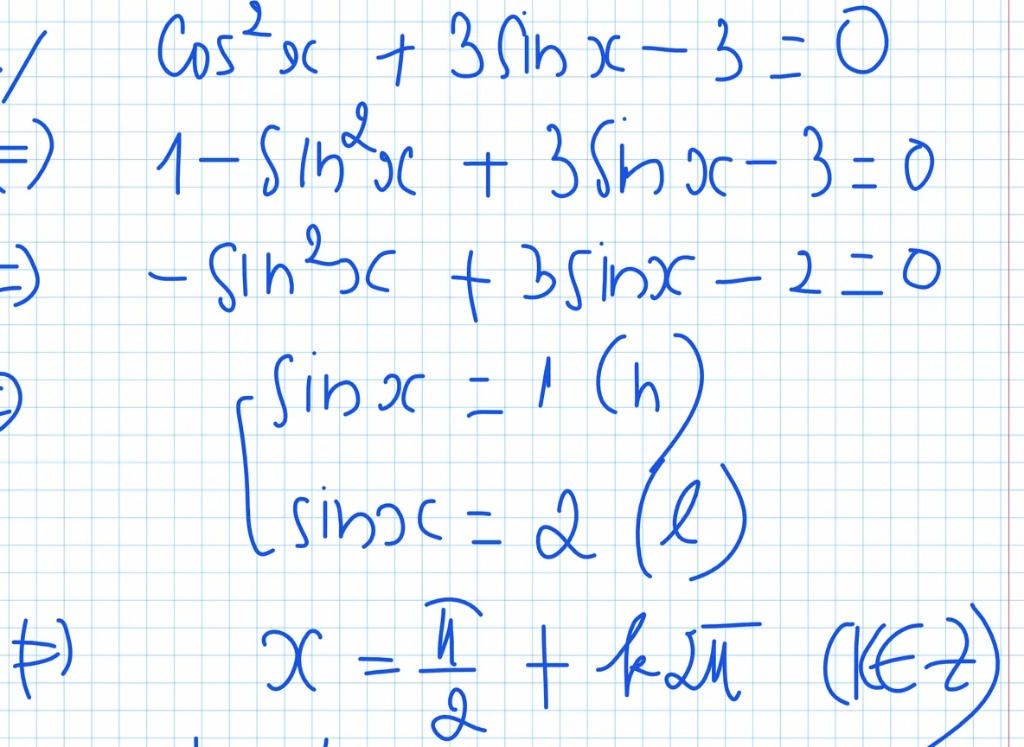 / cos²x + 3sinx - 3 = 0
=) 1 - sin²x + 3sinx - 3 = 0
=) - sin²x + 3sinx - 2 = 0
sinx = 1 (h)
sinx = 2 (l)
x = π/2 + k2π (k∈Z)